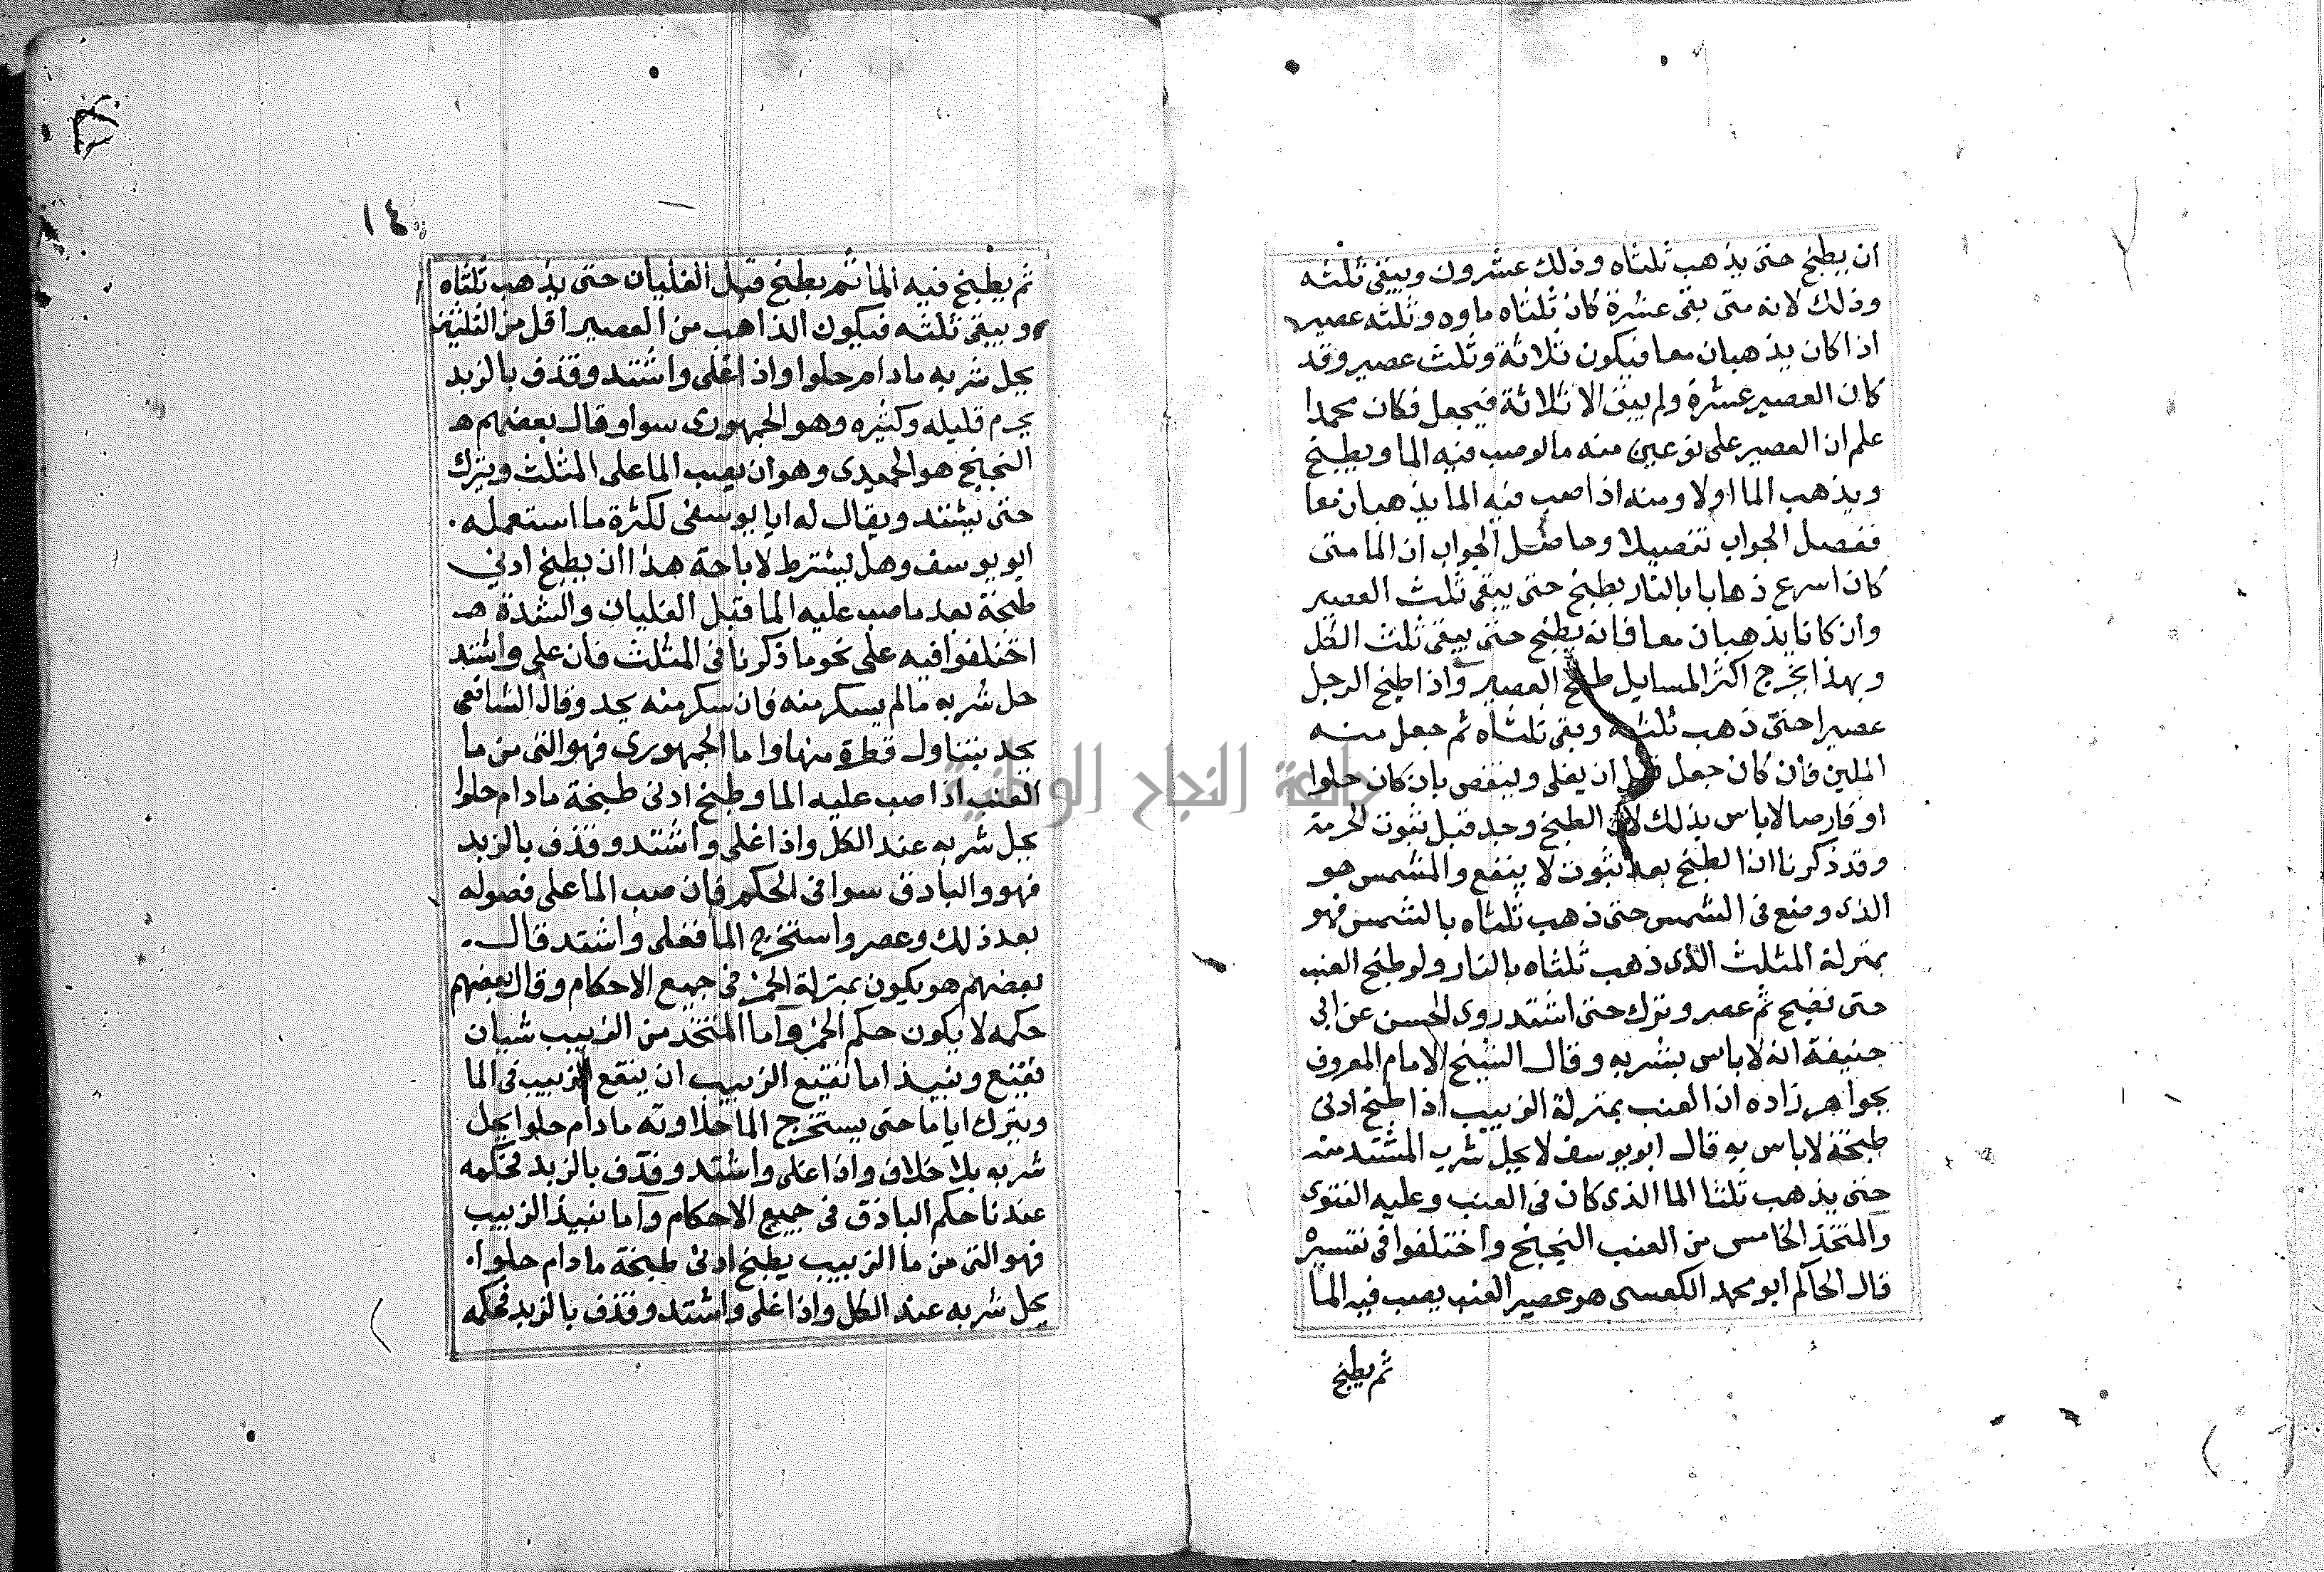 ان يطبخ حتى يذهب ثلثاه وذلك عشرون ويبقى ثلثه
وذلك لانه متى بقى عشرة كان ثلثاه ماوه وثلثه عصير
اذا كان يذهبان معا فيكون ثلاثة وثلث عصير وقد
كان العصير عشرة ولم يبق الا ثلاثة فيجعل فكان محمدا
علم ان العصير على نوعين منه مالو صب فيه الما ويطبخ
ويذهب الما اولا ومنه اذا صب فيه الما يذهبان معا
ففصل الجواب تفصيلا وحاصل الجواب ان الما متى
كان اسرع ذهابا بالنار يطبخ حتى يبقى ثلث العصير
وان كانا يذهبان معا فانه يطبخ حتى يبقى ثلث الكل
وبهذا يخرج اكثر المسايل طبخ العصير واذا طبخ الرجل
عصيرا حتى ذهب ثلثه وبقى ثلثاه ثم جعل منه
الملين فان كان جعل قبل ان يغلى وينقص بان كان حلوا
او قارصا لاباس بذلك لان الطبخ وجد قبل ثبوت الحرمة
وقد ذكرنا ان الطبخ بعد ثبوت لا ينفع والمشمس هو
الذى وضع فى الشمس حتى ذهب ثلثاه بالشمس فهو
بمنزلة المثلث الذى ذهب ثلثاه بالنار ولو طبخ العنب
حتى نضيح ثم عصر وترك حتى اشتد روى الحسن عن ابى
حنيفة انه لاباس بشربه وقال الشيخ الامام المعروف
بجواهر زاده ان العنب بمنزلة الزبيب اذا طبخ ادنى
طبخة لاباس به قال ابو يوسف لا يحل شرب المشتد منه
حتى يذهب ثلثا الما الذى كان فى العنب وعليه الفتوى
والمتخذ الخامس من العنب البختج واختلفوا فى تفسيره
قال الحاكم ابو محمد الكعسى هو عصير العنب يصب فيه الما
ثم يطبخ
١٤
ثم يطبخ فيه الما ثم يطبخ قبل الغليان حتى يذهب ثلثاه
ويبقى ثلثه فيكون الذاهب من العصير اقل من الثلثين
يحل شربه مادام حلوا واذا اغلى واشتد وقذف بالزبد
يحرم قليله وكثيره وهو الجمهورى سوا وقال بعضهم هـ
البختج هو الحميدى وهو ان يصب الما على المثلث ويترك
حتى يشتد ويقال له ابا يوسفى لكثرة ما استعمله.
ابو يوسف وهل يشترط لاباحة هذا ان يطبخ ادنى
طبخة بعد ما صب عليه الما قبل الغليان والشدة هـ
اختلفوا فيه على نحو ما ذكرنا فى المثلث فان على واشتد
حل شربه مالم يسكر منه فان سكر منه يحد وقال الشافعى
يحد بتناول قطرة منها واما الجمهورى فهو التى من ما
العنب اذا صب عليه الما وطبخ ادنى طبخة مادام حلوا
يحل شربه عند الكل واذا غلى واشتد وقذف بالزبد
فهو والباذق سوا فى الحكم فان صب الما على فصوله
بعد ذلك وعصر واستخرج الما فغلى واشتد قال.
بعضهم هو يكون بمنزلة الخمر فى جميع الاحكام وقال بعضهم
حكمه لا يكون حكم الخمر واما المتخذ من الزبيب شيان
نقيع ونبيذ اما نقيع الزبيب ان ينقع الزبيب فى الما
ويترك اياما حتى يستخرج الما حلاوته مادام حلوا يحل
شربه بلا خلاف واذا غلى واشتد وقذف بالزبد فحكمه
عندنا حكم الباذق فى جميع الاحكام واما نبيذ الزبيب
فهو التى من ما الزبيب يطبخ ادنى طبخة مادام حلوا.
يحل شربه عند الكل واذا غلى واشتد وقذف بالزبد فحكمه
جامعة النجاح الوطنية